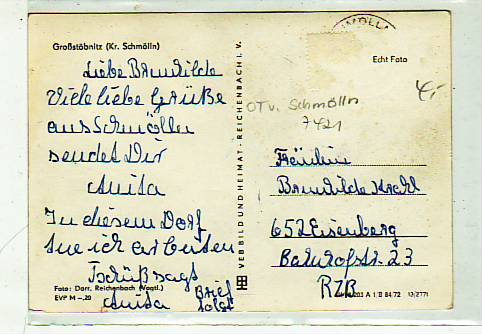 Großstöbnitz (Kr. Schmölln)
Liebe Brunhilde
Viele liebe Grüße
aus Schmölln
sendet Dir
Anita
In diesem Dorf
tue ich arbeiten
Tschüß sagt
Anita
Brief
folgt
Foto: Darr, Reichenbach (Vogtl.)
EVP M –.20
VEB BILD UND HEIMAT · REICHENBACH i. V.
MÖLL
Echt Foto
OT v. Schmölln
7421
Fräulein
Brunhilde
652 Eisenberg
Bahnhofstr. 23
A 1/B 84/72